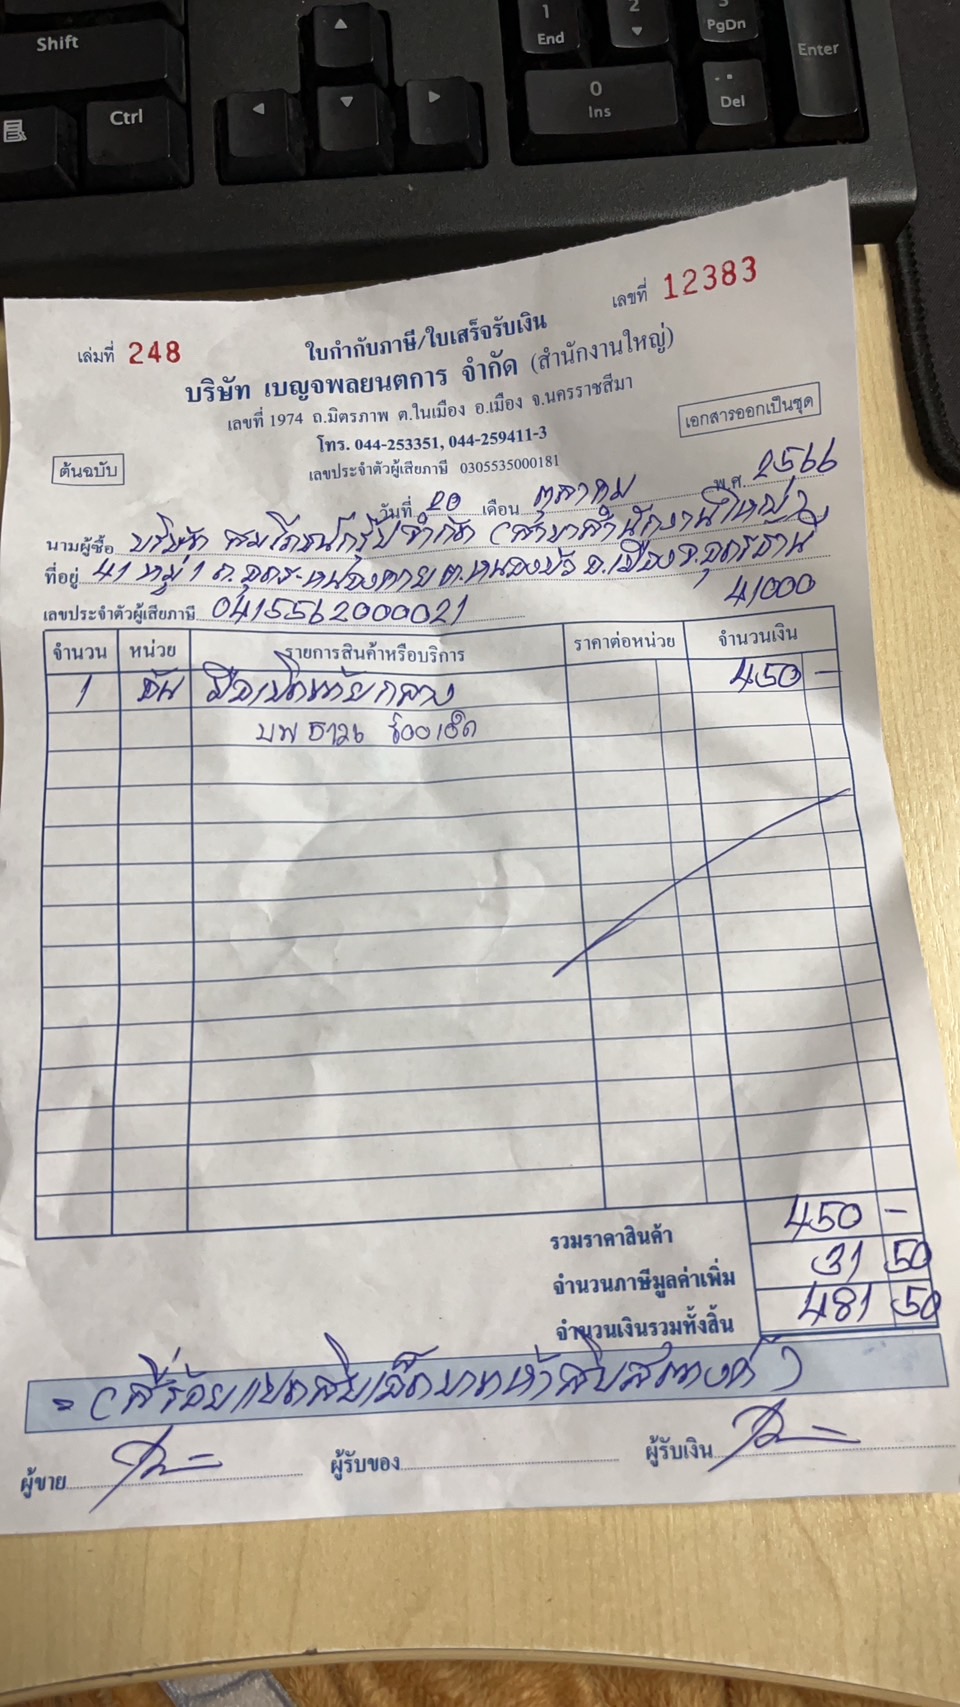 Shift
Ctrl
1
End
2
3
PgDn
Enter
0
Ins
.
Del
เลขที่ 12383
เล่มที่ 248
ใบกำกับภาษี/ใบเสร็จรับเงิน
บริษัท เบญจพลยนตการ จำกัด (สำนักงานใหญ่)
เลขที่ 1974 ถ.มิตรภาพ ต.ในเมือง อ.เมือง จ.นครราชสีมา
เอกสารออกเป็นชุด
โทร. 044-253351, 044-259411-3
ต้นฉบับ
เลขประจำตัวผู้เสียภาษี 0305535000181
วันที่ 20 เดือน ตุลาคม พ.ศ. 2566
นามผู้ซื้อ บริษัท สมโภชน์กรุ๊ป จำกัด (สาขาสำนักงานใหญ่)
ที่อยู่ 41 หมู่ 1 ถ.อุดร-หนองคาย ต.หนองบัว อ.เมือง จ.อุดรธานี
41000
เลขประจำตัวผู้เสียภาษี 0415562000021
จำนวน หน่วย รายการสินค้าหรือบริการ ราคาต่อหน่วย จำนวนเงิน
1 อัน มือเปิดท้ายกลาง 450 -
450 -
รวมราคาสินค้า
31 50
จำนวนภาษีมูลค่าเพิ่ม
481 50
จำนวนเงินรวมทั้งสิ้น
= (สี่ร้อยแปดสิบเอ็ดบาทห้าสิบสตางค์)
ผู้ขาย ผู้รับของ ผู้รับเงิน